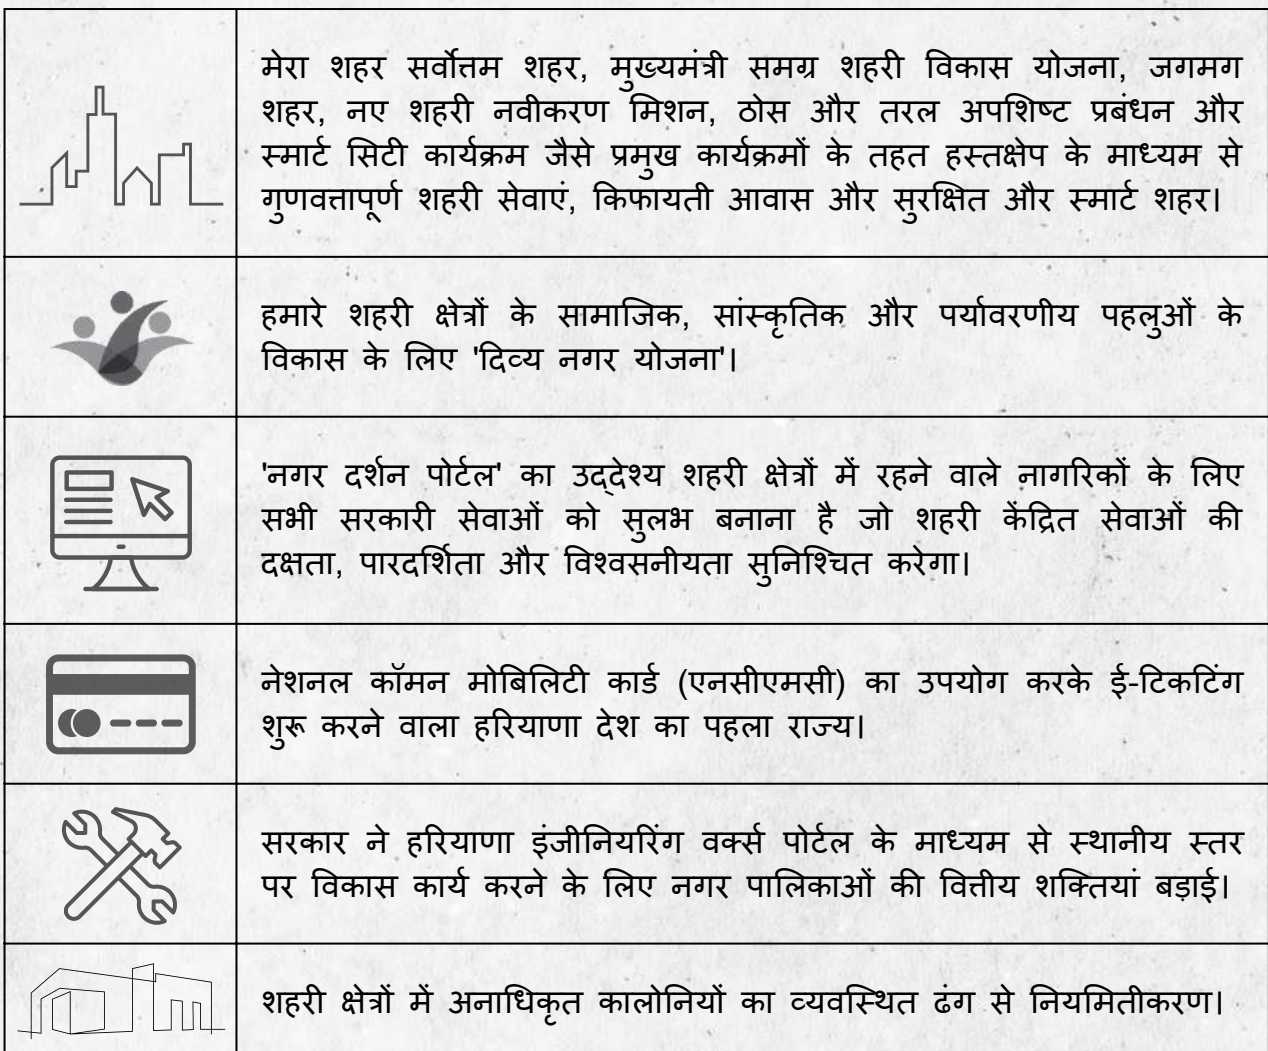 मेरा शहर सर्वोत्तम शहर, मुख्यमंत्री समग्र शहरी विकास योजना, जगमग
शहर, नए शहरी नवीकरण मिशन, ठोस और तरल अपशिष्ट प्रबंधन और
स्मार्ट सिटी कार्यक्रम जैसे प्रमुख कार्यक्रमों के तहत हस्तक्षेप के माध्यम से
गुणवत्तापूर्ण शहरी सेवाएं, किफायती आवास और सुरक्षित और स्मार्ट शहर।
हमारे शहरी क्षेत्रों के सामाजिक, सांस्कृतिक और पर्यावरणीय पहलुओं के
विकास के लिए 'दिव्य नगर योजना'।
'नगर दर्शन पोर्टल' का उद्देश्य शहरी क्षेत्रों में रहने वाले नागरिकों के लिए
सभी सरकारी सेवाओं को सुलभ बनाना है जो शहरी केंद्रित सेवाओं की
दक्षता, पारदर्शिता और विश्वसनीयता सुनिश्चित करेगा।
नेशनल कॉमन मोबिलिटी कार्ड (एनसीएमसी) का उपयोग करके ई-टिकटिंग
शुरू करने वाला हरियाणा देश का पहला राज्य।
सरकार ने हरियाणा इंजीनियरिंग वर्क्स पोर्टल के माध्यम से स्थानीय स्तर
पर विकास कार्य करने के लिए नगर पालिकाओं की वित्तीय शक्तियां बड़ाई।
शहरी क्षेत्रों में अनाधिकृत कालोनियों का व्यवस्थित ढंग से नियमितीकरण।